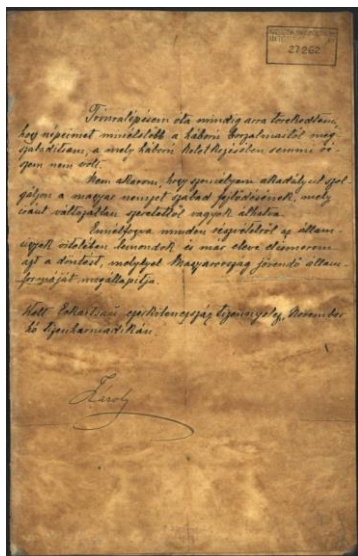 27262
Trónralépésem óta mindig arra törekedtem,
hogy népeimet minélelőbb a háború borzalmaitól meg-
szabadítsam, a mely háború keletkezésében semmi ré-
szem nem volt.
Nem akarom, hogy személyem akadályul szol-
gáljon a magyar nemzet szabad fejlődésének, mely
iránt változatlan szeretettől vagyok áthatva.
Ennélfogva minden részvételről az állam-
ügyek vitelében lemondok és már eleve elismerem
azt a döntést, melylyel Magyarország jövendő állam-
formáját megállapítja.
Kelt Eckartsau, ezerkilencszáz tizennyolcz, November
hó tizenharmadikán.
Károly